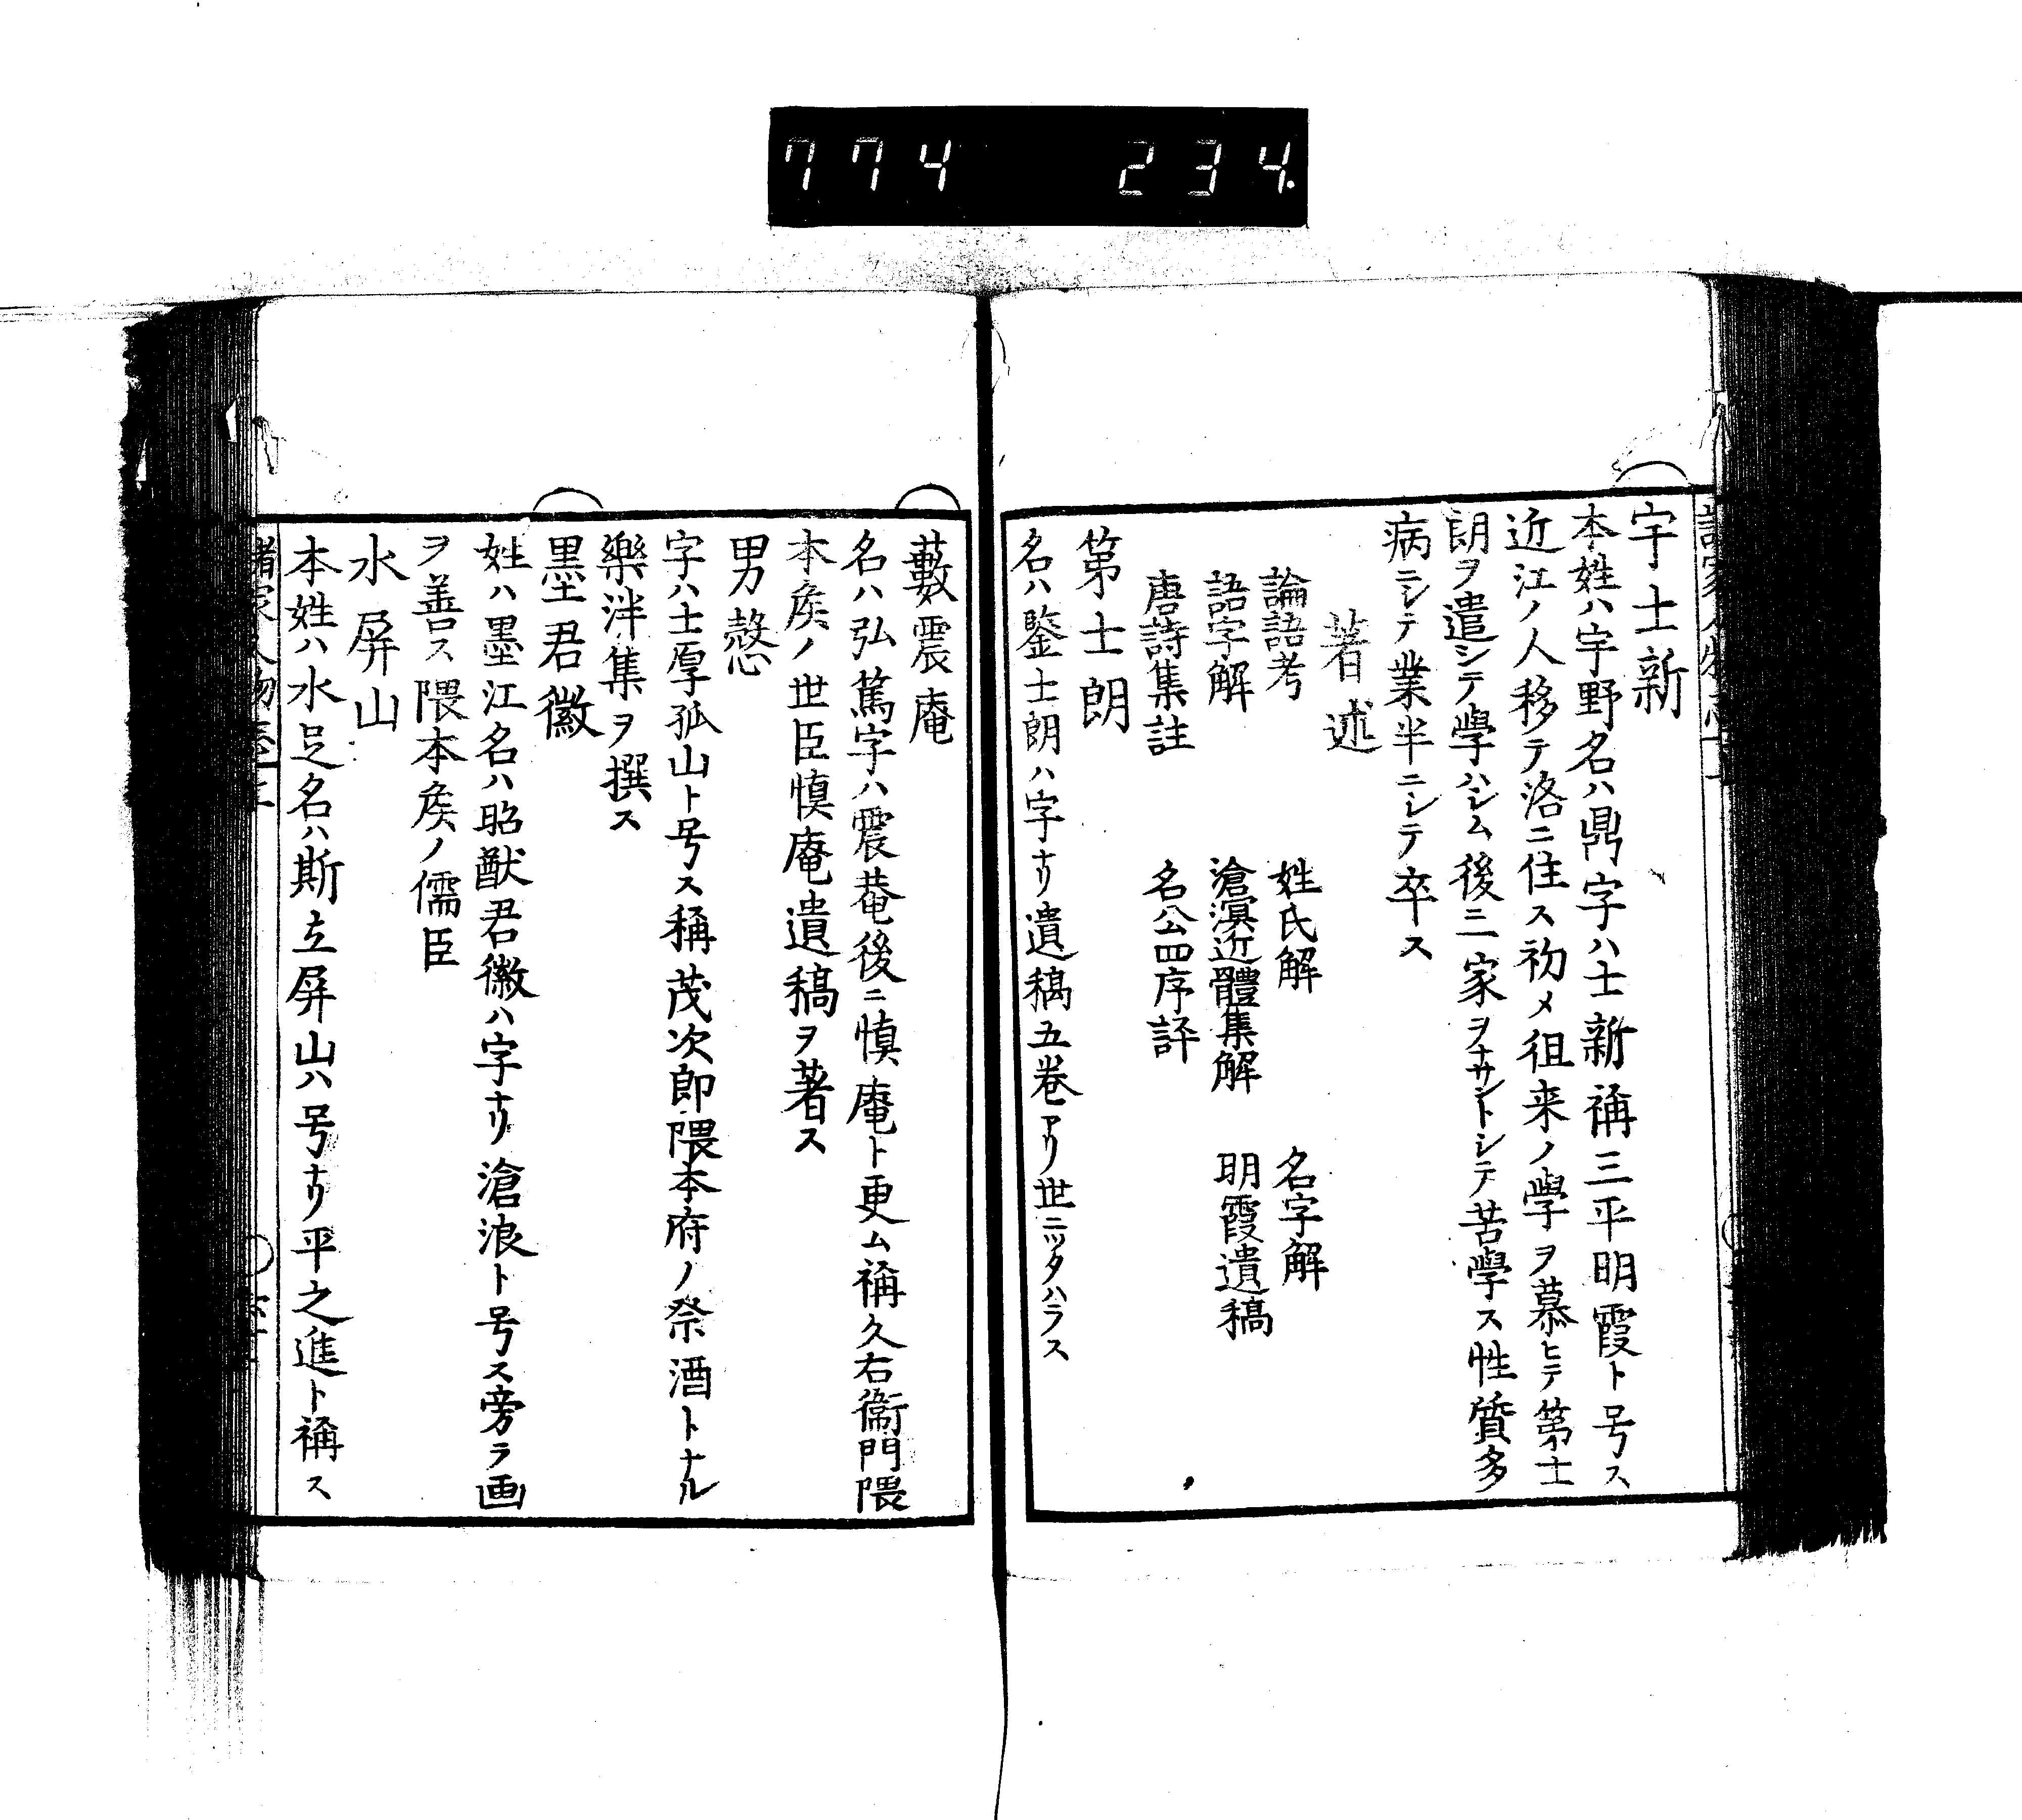 774 234.
宇士新
本姓ハ宇野名ハ鼎字ハ士新稱三平明霞ト号ス
近江ノ人移テ洛ニ住ス初メ徂来ノ學ヲ慕ヒテ第士
朗ヲ遣シテ學ハシム後ニ一家ヲナサントシテ苦學ス性質多
病ニシテ業半ニシテ卒ス
著述
論語考 姓氏解 名字解
語字解 滄溟近體集解 明霞遺稿
唐詩集註 名公四序評
第士朗
名ハ鑒士朗ハ字ナリ遺稿五巻アリ世ニツタハラス
藪震庵
名ハ弘篤字ハ震菴後ニ慎庵ト更ム稱久右衞門隈
本矦ノ世臣慎庵遺稿ヲ著ス
男愨
字ハ士厚孤山ト号ス稱茂次郎隈本府ノ祭酒トナル
樂泮集ヲ撰ス
墨君徽
姓ハ墨江名ハ昭猷君徽ハ字ナリ滄浪ト号ス旁ラ画
ヲ善ス隈本矦ノ儒臣
水屏山
本姓ハ水足名ハ斯立屏山ハ号ナリ平之進ト稱ス